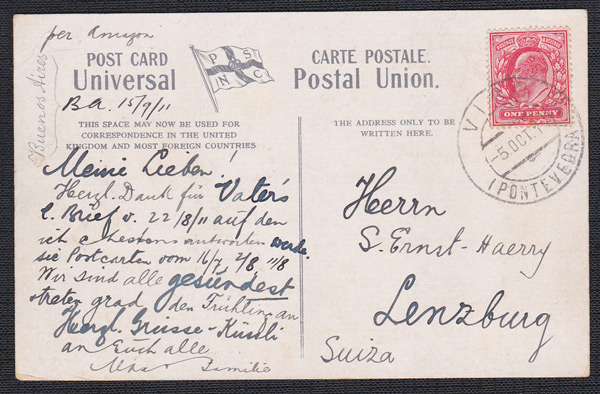 per Amazon
Buenos Aires
POST CARD
Universal
P S
N C
CARTE POSTALE.
Postal Union.
B.A. 15/9/11
THIS SPACE MAY NOW BE USED FOR
CORRESPONDENCE IN THE UNITED
KINGDOM AND MOST FOREIGN COUNTRIES
THE ADDRESS ONLY TO BE
WRITTEN HERE.
ONE PENNY
VI
-5.OCT.
(PONTEVEDRA)
Meine Lieben!
Herzl. Dank für Vater's
l. Brief v. 22/8/11 auf den
ich antworten werde.
sie Postcarten vom 16/7 2/8 11/8
Wir sind alle gesündest
treten grad den Frühling an
Herzl. Grüsse-Küssli
an Euch alle
Familie
Herrn
S. Ernst-Haerry
Lenzburg
Suiza